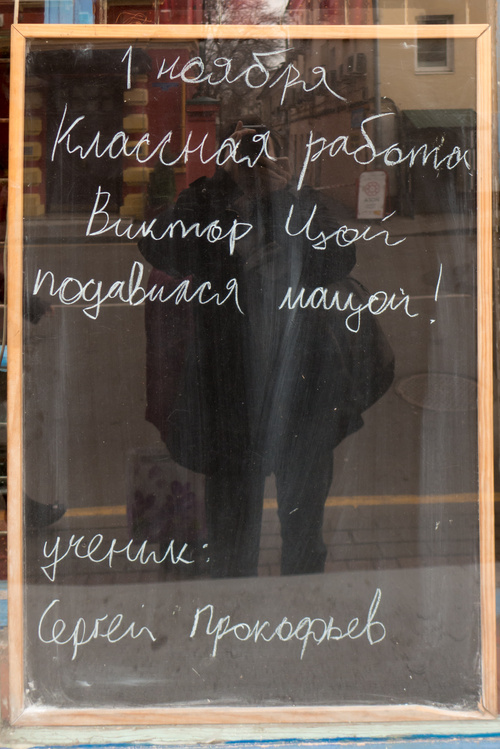 1 ноября
Классная работа
Виктор Цой
подавился мацой!
ученик:
Сергей Прокофьев